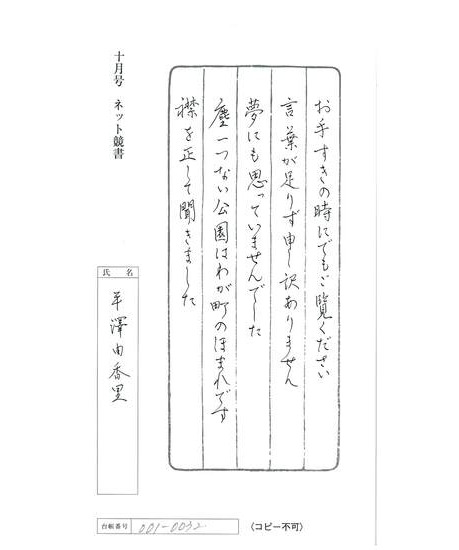 お手すきの時にでもご覧ください
言葉が足りず申し訳ありません
夢にも思っていませんでした
塵一つない公園はわが町のほまれです
襟を正して聞きました
十月号 ネット競書
氏名
平澤由香里
台帳番号 001-0032
(コピー不可)